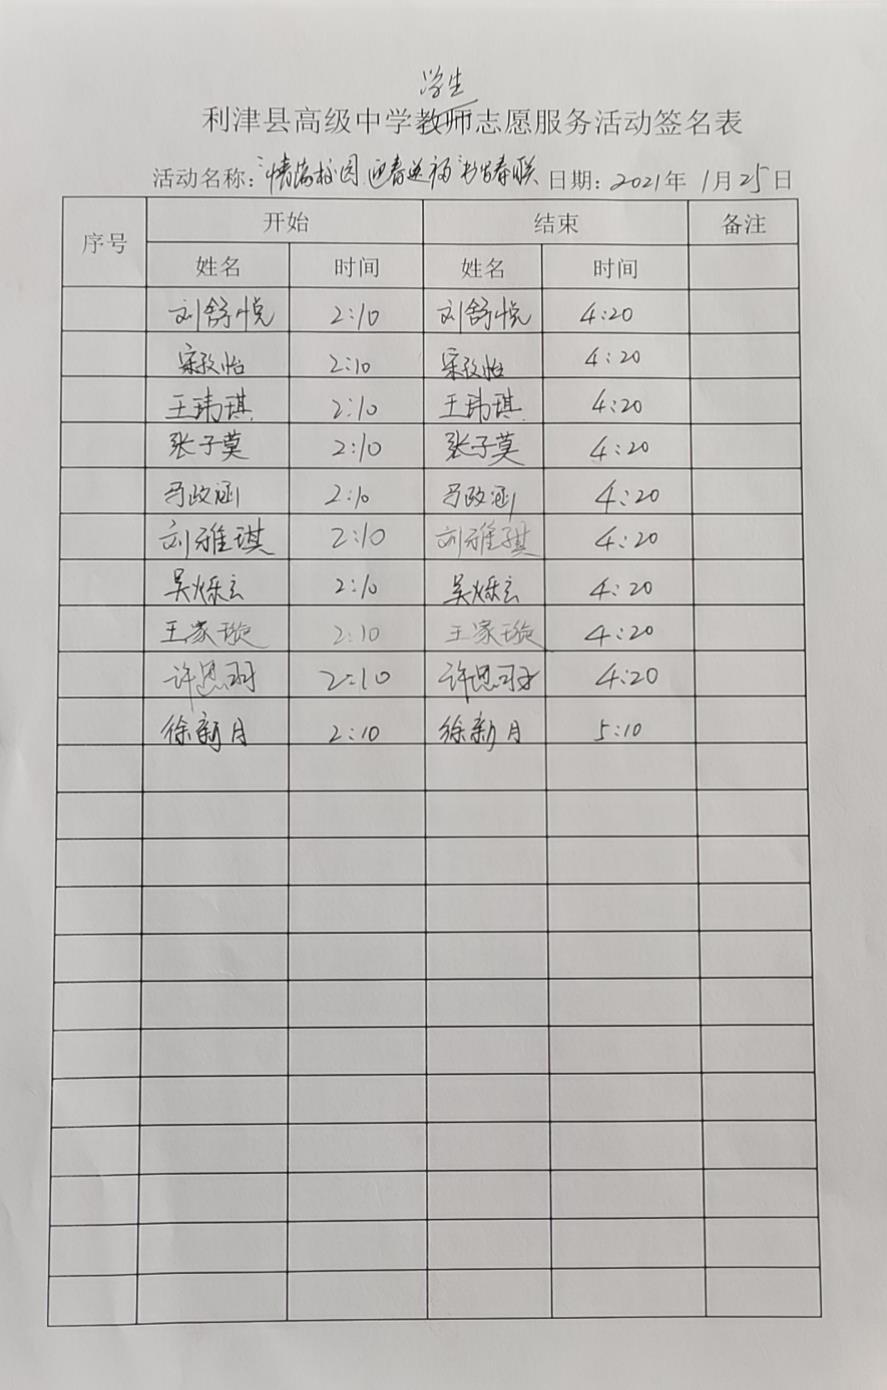 学生
利津县高级中学教师志愿服务活动签名表
活动名称："情满校园 迎春送福"书写春联 日期：2021年 1月25日
序号 开始 结束 备注
姓名 时间 姓名 时间
刘舒悦 2:10 刘舒悦 4:20
宋孜怡 2:10 宋孜怡 4:20
王玮琪 2:10 王玮琪 4:20
张子莫 2:10 张子莫 4:20
马政涵 2:10 马政涵 4:20
刘雅琪 2:10 刘雅琪 4:20
吴烁玄 2:10 吴烁玄 4:20
王家璇 2:10 王家璇 4:20
许恩羽 2:10 许恩羽 4:20
徐新月 2:10 徐新月 5:10